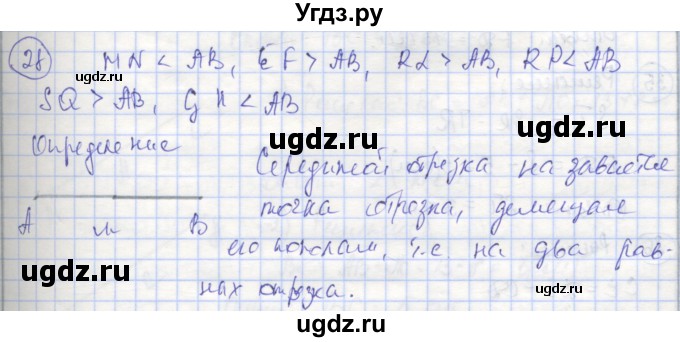 Угдз.ру
28 MN < AB, EF > AB, RL > AB, RP < AB
SQ > AB, GH < AB
Определение
Серединой отрезка називается
точка отрезка, делящая
A м B его пополам, т.е. на два рав-
ных отрезка.
ugdz.ru ugdz.ru
ugdz.ru ugdz.ru
ugdz.ru ugdz.ru
ugdz.ru